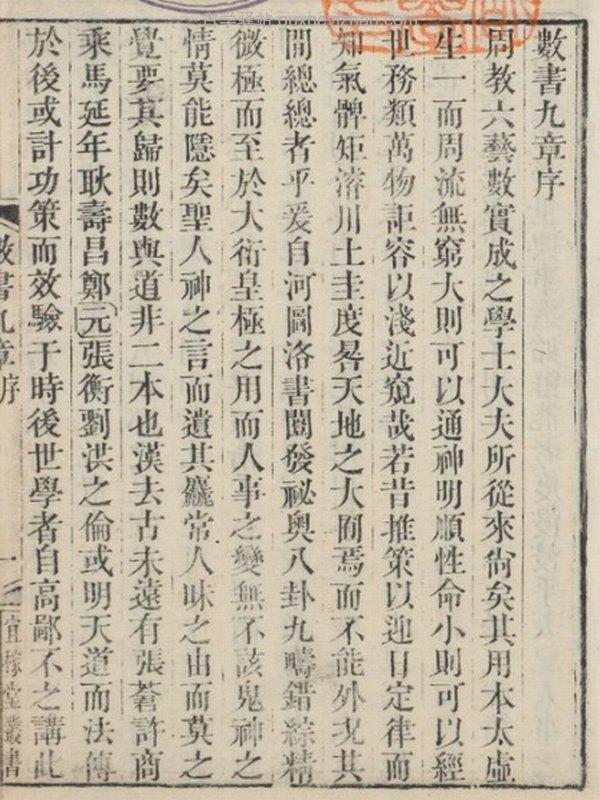 數書九章序
周教六藝數實成之學士大夫所從來尙矣其用本太虛
生一而周流無窮大則可以通神明順性命小則可以經
世務類萬物詎容以淺近窺哉若昔推策以迎日定律而
知氣髀矩濬川土圭度晷天地之大囿焉而不能外况其
間總總者乎爰自河圖洛書闓發祕奧八卦九疇錯綜精
微極而至於大衍皇極之用而人事之變無不該鬼神之
情莫能隱矣聖人神之言而遺其麤常人昧之由而莫之
覺要其歸則數與道非二本也漢去古未遠有張蒼許商
乘馬延年耿壽昌鄭元張衡劉洪之倫或明天道而法傳
於後或計功策而效驗于時後世學者自高鄙不之講此
數書九章序
一
宜稼堂叢書